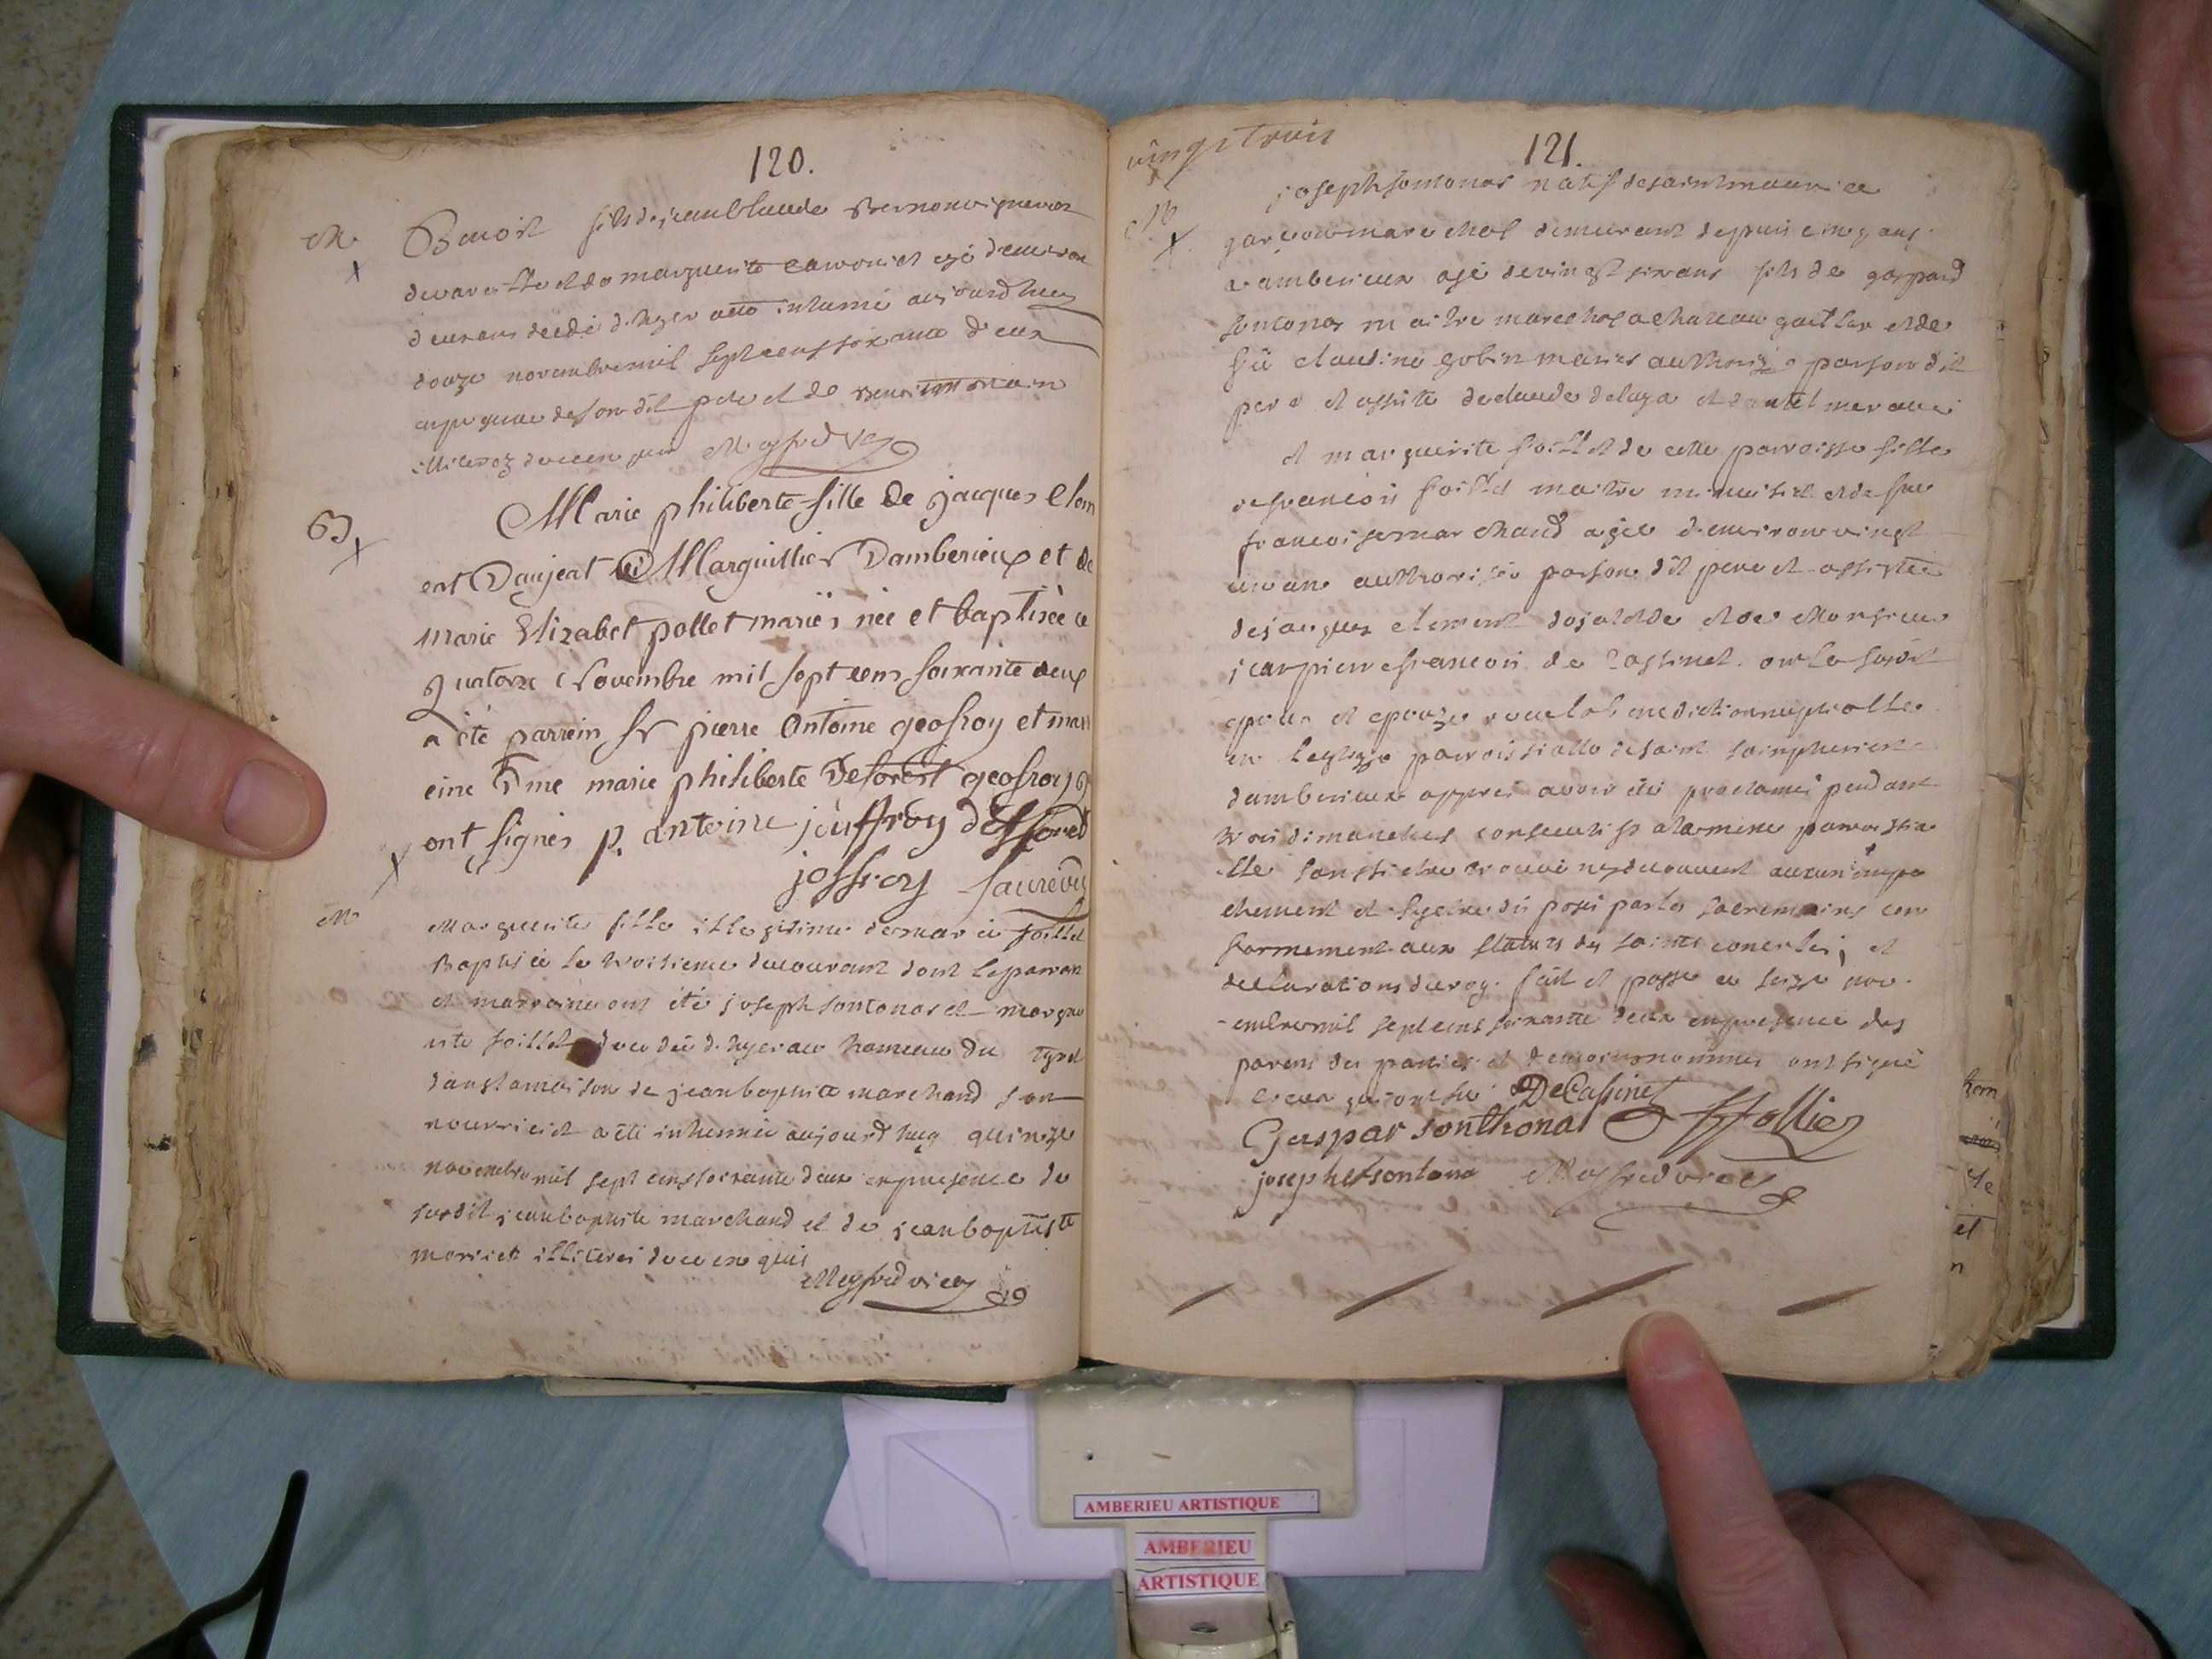 120.
M. Benoit fils de jean Claude vigneron
de et de marguerite agé denviron
deux ans decedé d'hyer a eté inhumé aujourdhuy
douze novembre mil sept cens soixante deux
en presence de son dit pere et de
illiterez de ce enquis Meyfred
B Marie philiberte fille de jacques Clem
ent Daujeat Marguillier Damberieux et de
Marie Elizabet pollet mariés née et baptisée ce
quatorze Novembre mil sept cens soixante deux
a été parrein Sr pierre Antoine geofroy et marr
eine Dme marie philiberte Deforest geofroy q
ont signés p. antoine jouffroy defforest
joffroy
M. Marguerite fille illegitime de marie foillet
Baptisée le troisieme du courant dont le parrain
et marraine ont été joseph sontonas et margue
rite foillet decedée d'hyer au hameau du tyret
dans la maison de jean baptiste marchand son
nourricier a été inhumée aujourdhuy quinze
novembre mil sept cens soixante deux en presence du
susdit jean baptiste marchand et de jean baptiste
illiterés de ce enquis
Meyfred vicaire
vingt trois
121.
M. joseph sontonas natif de saint maurice
garçon marechal demeurant depuis cinq ans
a amberieux agé de vingt six ans fils de gaspard
sontonas maitre marechal a chateau gaillar et de
füe claudine gobin mariés authorizé par son dit
pere et assisté de claude et
et marguerite foillet de cette parroisse fille
de francois foillet maitre menuisier et de fue
francoise marchand agée d'environ vingt
un ans authorisée par son dit pere et assistée
de jacques clement et de Monsieur
jean pierre francois de Cassinet. ont le susdit
epoux et epouze recu la benediction nuptialle
en leglize parroissialle de saint simphorien
damberieux apprés avoir été proclamés pendant
trois dimanches consecutifs a la messe parroissia
lle sans s'etre trouvé ny decouvert aucun empe
chement et s'y etre disposés par les sacremens con
formement aux statuts des saints conciles, et
declarations du roy. fait et passé ce seize nov-
embre mil sept cens soixante deux en presence des
parens des parties et temoins nommés ont signé
ceux qui ont sü DeCassinet
Gaspar sonthonas ffollie
josephe sontona Meyfred vicaire
hom
et
n
AMBERIEU ARTISTIQUE
AMBERIEU
ARTISTIQUE